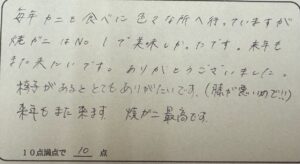 毎年カニを食べに色々な所へ行っていますが
焼ガニはNo1で美味しかったです。来年も
また来たいです。ありがとうございました。
椅子があるととてもありがたいです。(膝が悪いので!!)
来年もまた来ます。焼がニ最高です。
10点満点で 10 点